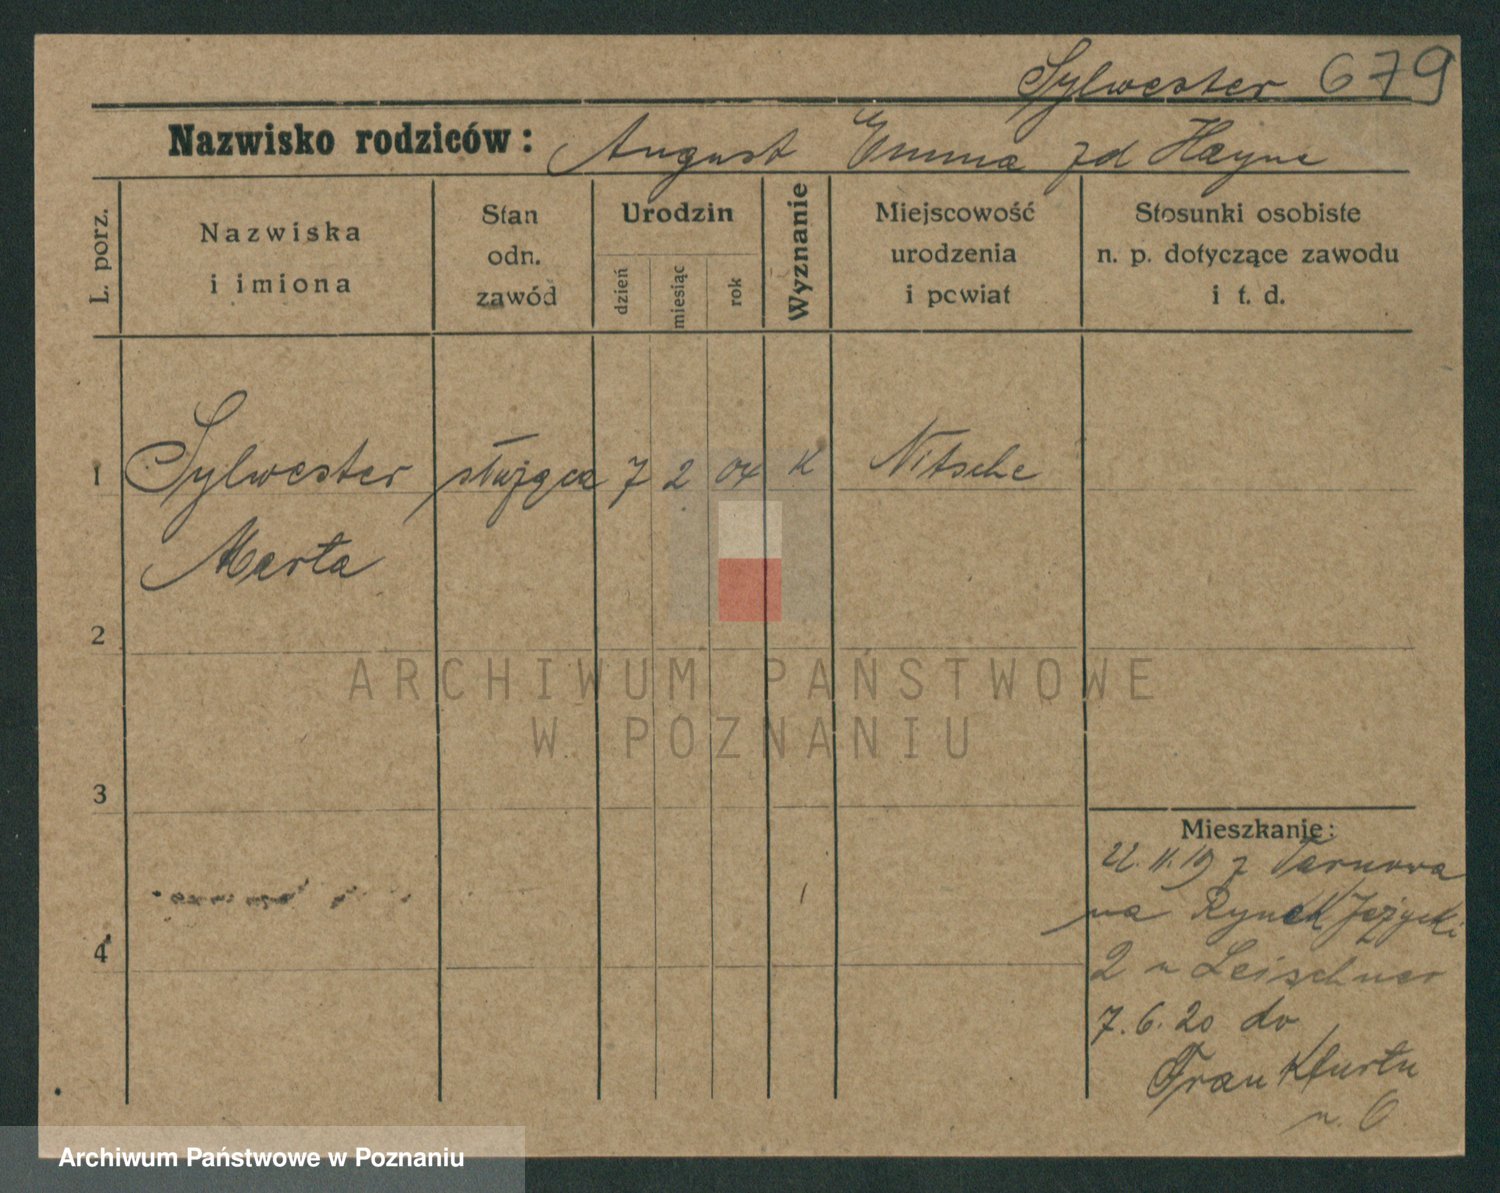 Sylwester 679
Nazwisko rodziców: August Emma zd Hayne
L. porz.
Nazwiska
i imiona
Stan
odn.
zawód
Urodzin
dzień
miesiąc
rok
Wyznanie
Miejscowość
urodzenia
i powiat
Stosunki osobiste
n. p. dotyczące zawodu
i t. d.
1 Sylwester służąca 7 2 04 K Nitsche
Marta
2
3
4
Mieszkanie:
22.11.19 z Tarnowa
na Rynek Jeżycki
2 u Leischner
7.6.20 do
Frankfurtu
n. O
ARCHIWUM PAŃSTWOWE
W POZNANIU
Archiwum Państwowe w Poznaniu